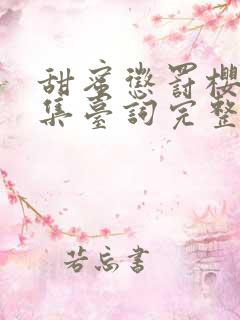 甜蜜懲罰櫻
集臺詞完整
若忘書